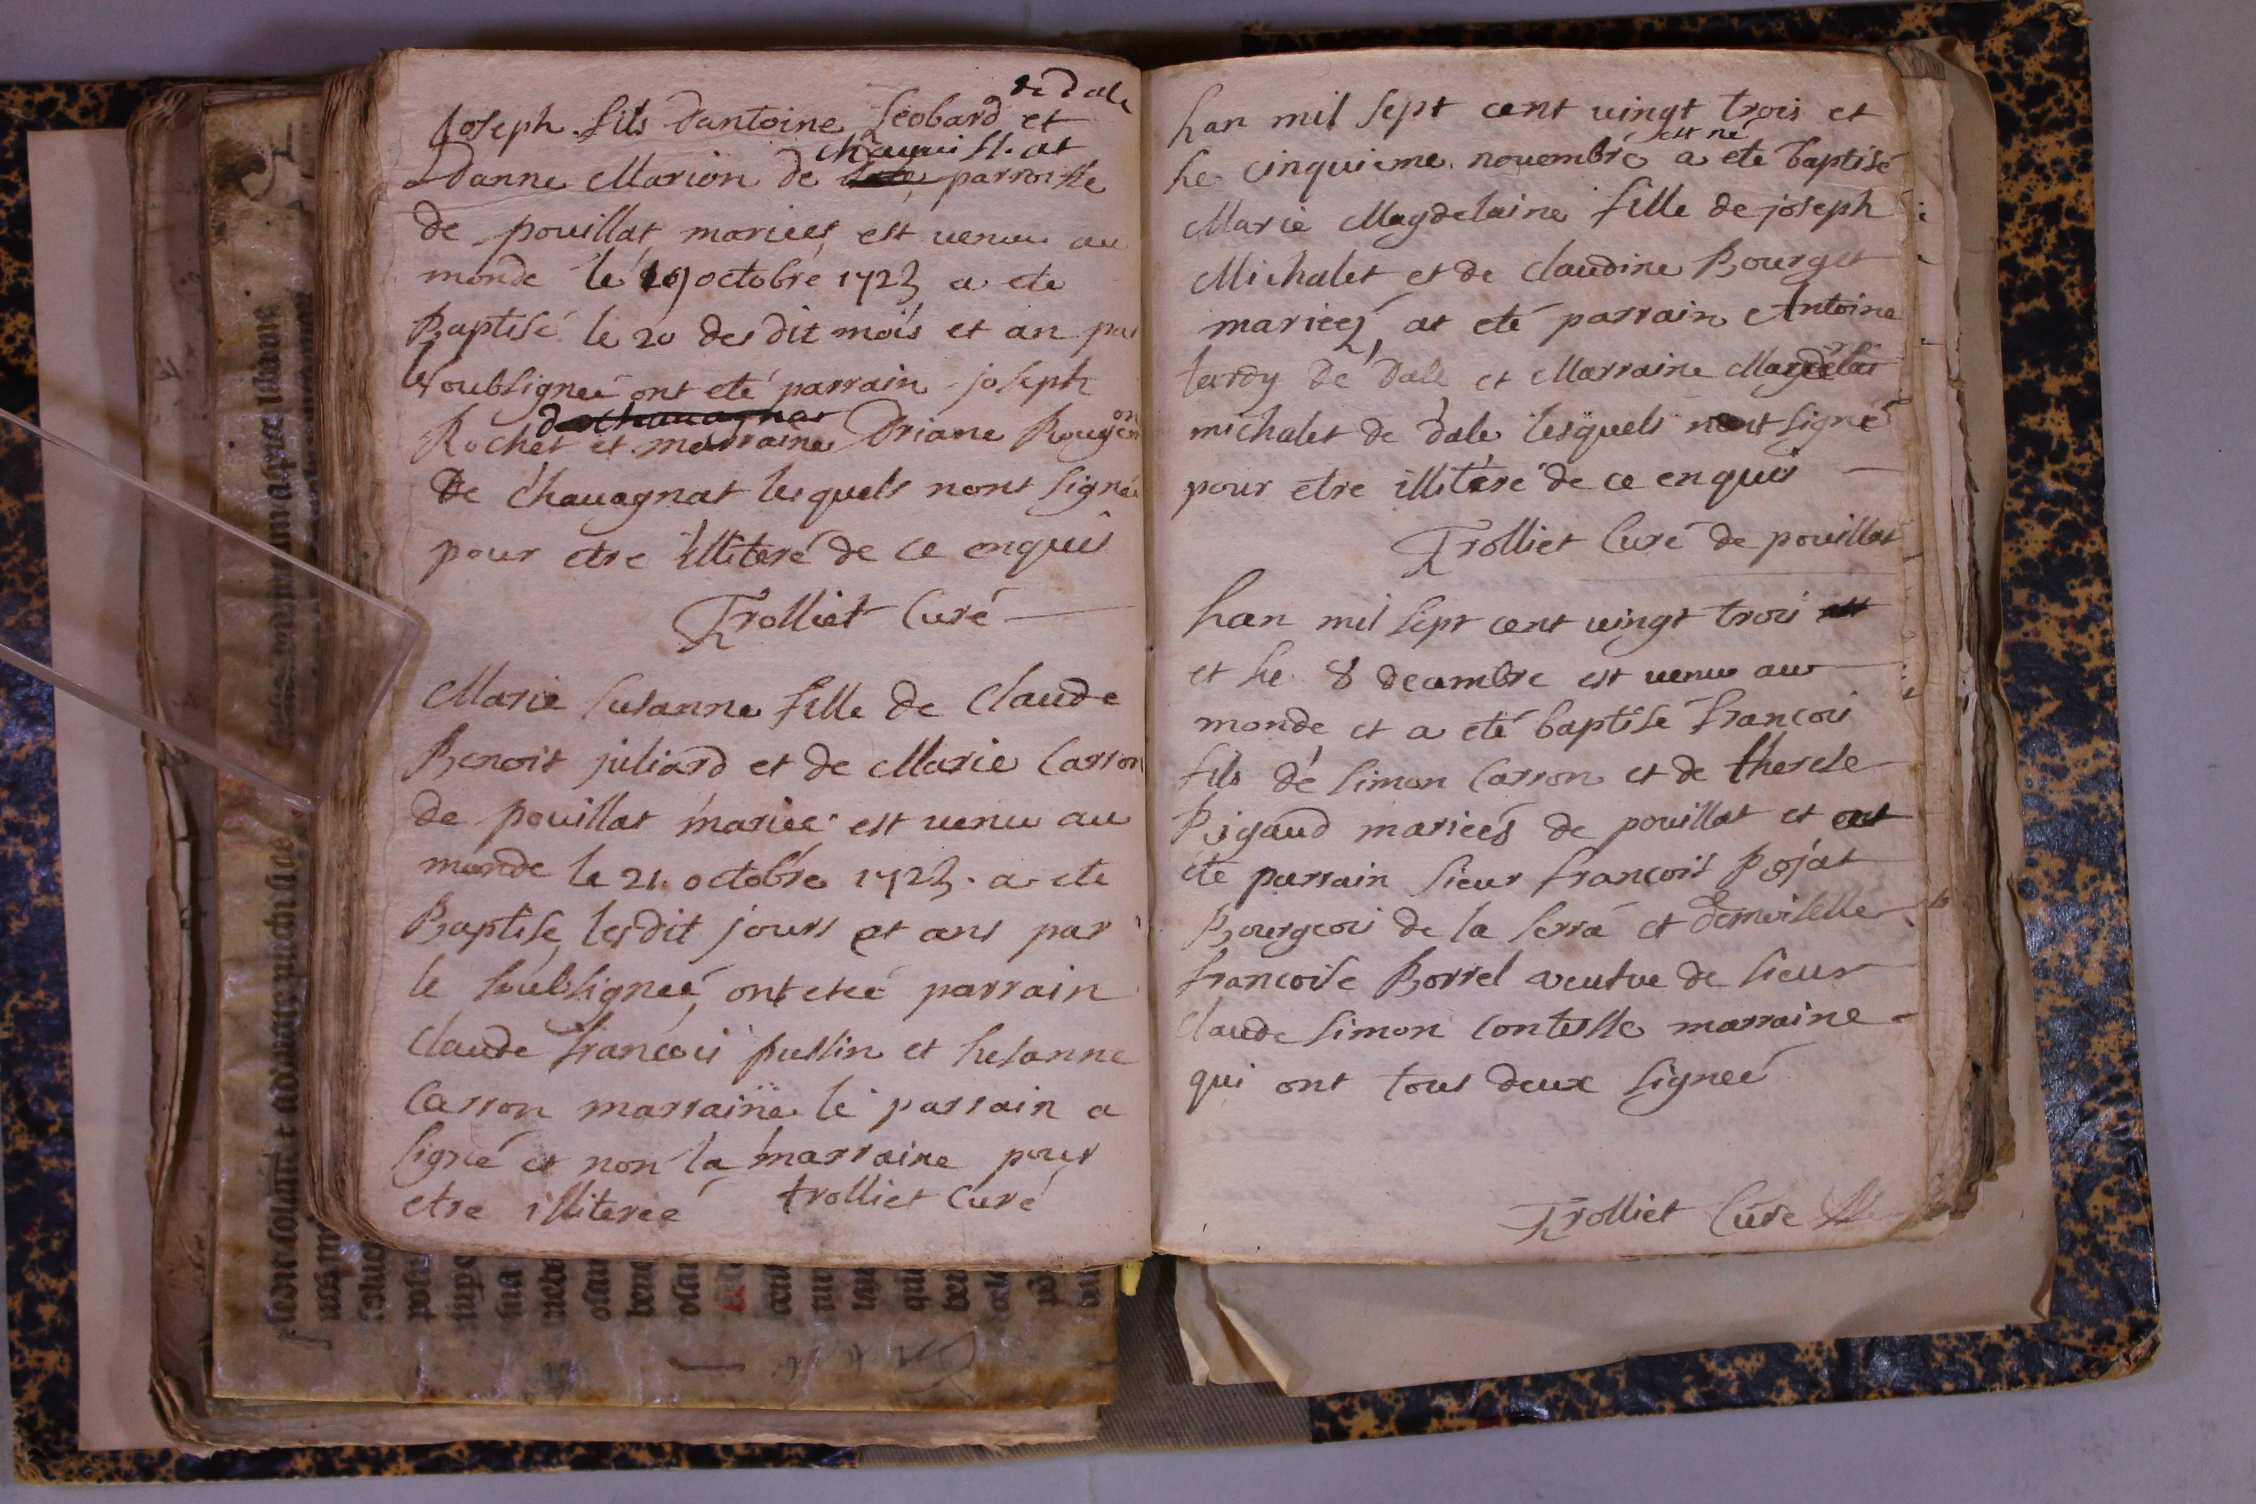 de Dale
Joseph fils dantoine Leobard et
danne Marion de parroisse
de pouillat mariees est venu au
monde le 19 octobre 1723 a ete
Baptisé le 20 des dit mois et an par
le soubsigneé ont eté parrain joseph
Rochet et marraine Driane Rougemon
De chauagnat lesquels nont signé
pour etre illiteré de ce enquis
Trolliet Curé
Marie susanne fille de Claude
Benoit juliard et de Marie Carron
de pouillat mariee est venu au
monde le 21 octobre 1723 a ete
Baptise lesdit jours et ans par
le soubsigneé ont eteé parrain
Claude francois pussin et susanne
Carron marraine le parrain a
signé et non la marraine pour
etre illitereé trolliet Curé
han mil sept cent vingt trois et
est né
he cinquieme nouembre a eté baptisé
Marie Magdelaine fille de joseph
Michalet et de Claudine Bourget
marieéz at eté parrain Antoine
tardy de Dale et Marraine
michalet de dale lesquels nont signé
pour etre illiteré de ce enquis
Trolliet Curé de pouillat
han mil sept cent vingt trois
et he 8 decembre est venu au
monde et a eté baptisé francois
fils de simon Carron et de therese
Rigaud marieés de pouillat et ont
ete parrain sieur francois Pojat
Bourgeois de la serra et demoiselle
francoise Borrel veutve de sieur
Claude simon Contesse marraine
qui ont tous deux signeé
Trolliet Cure